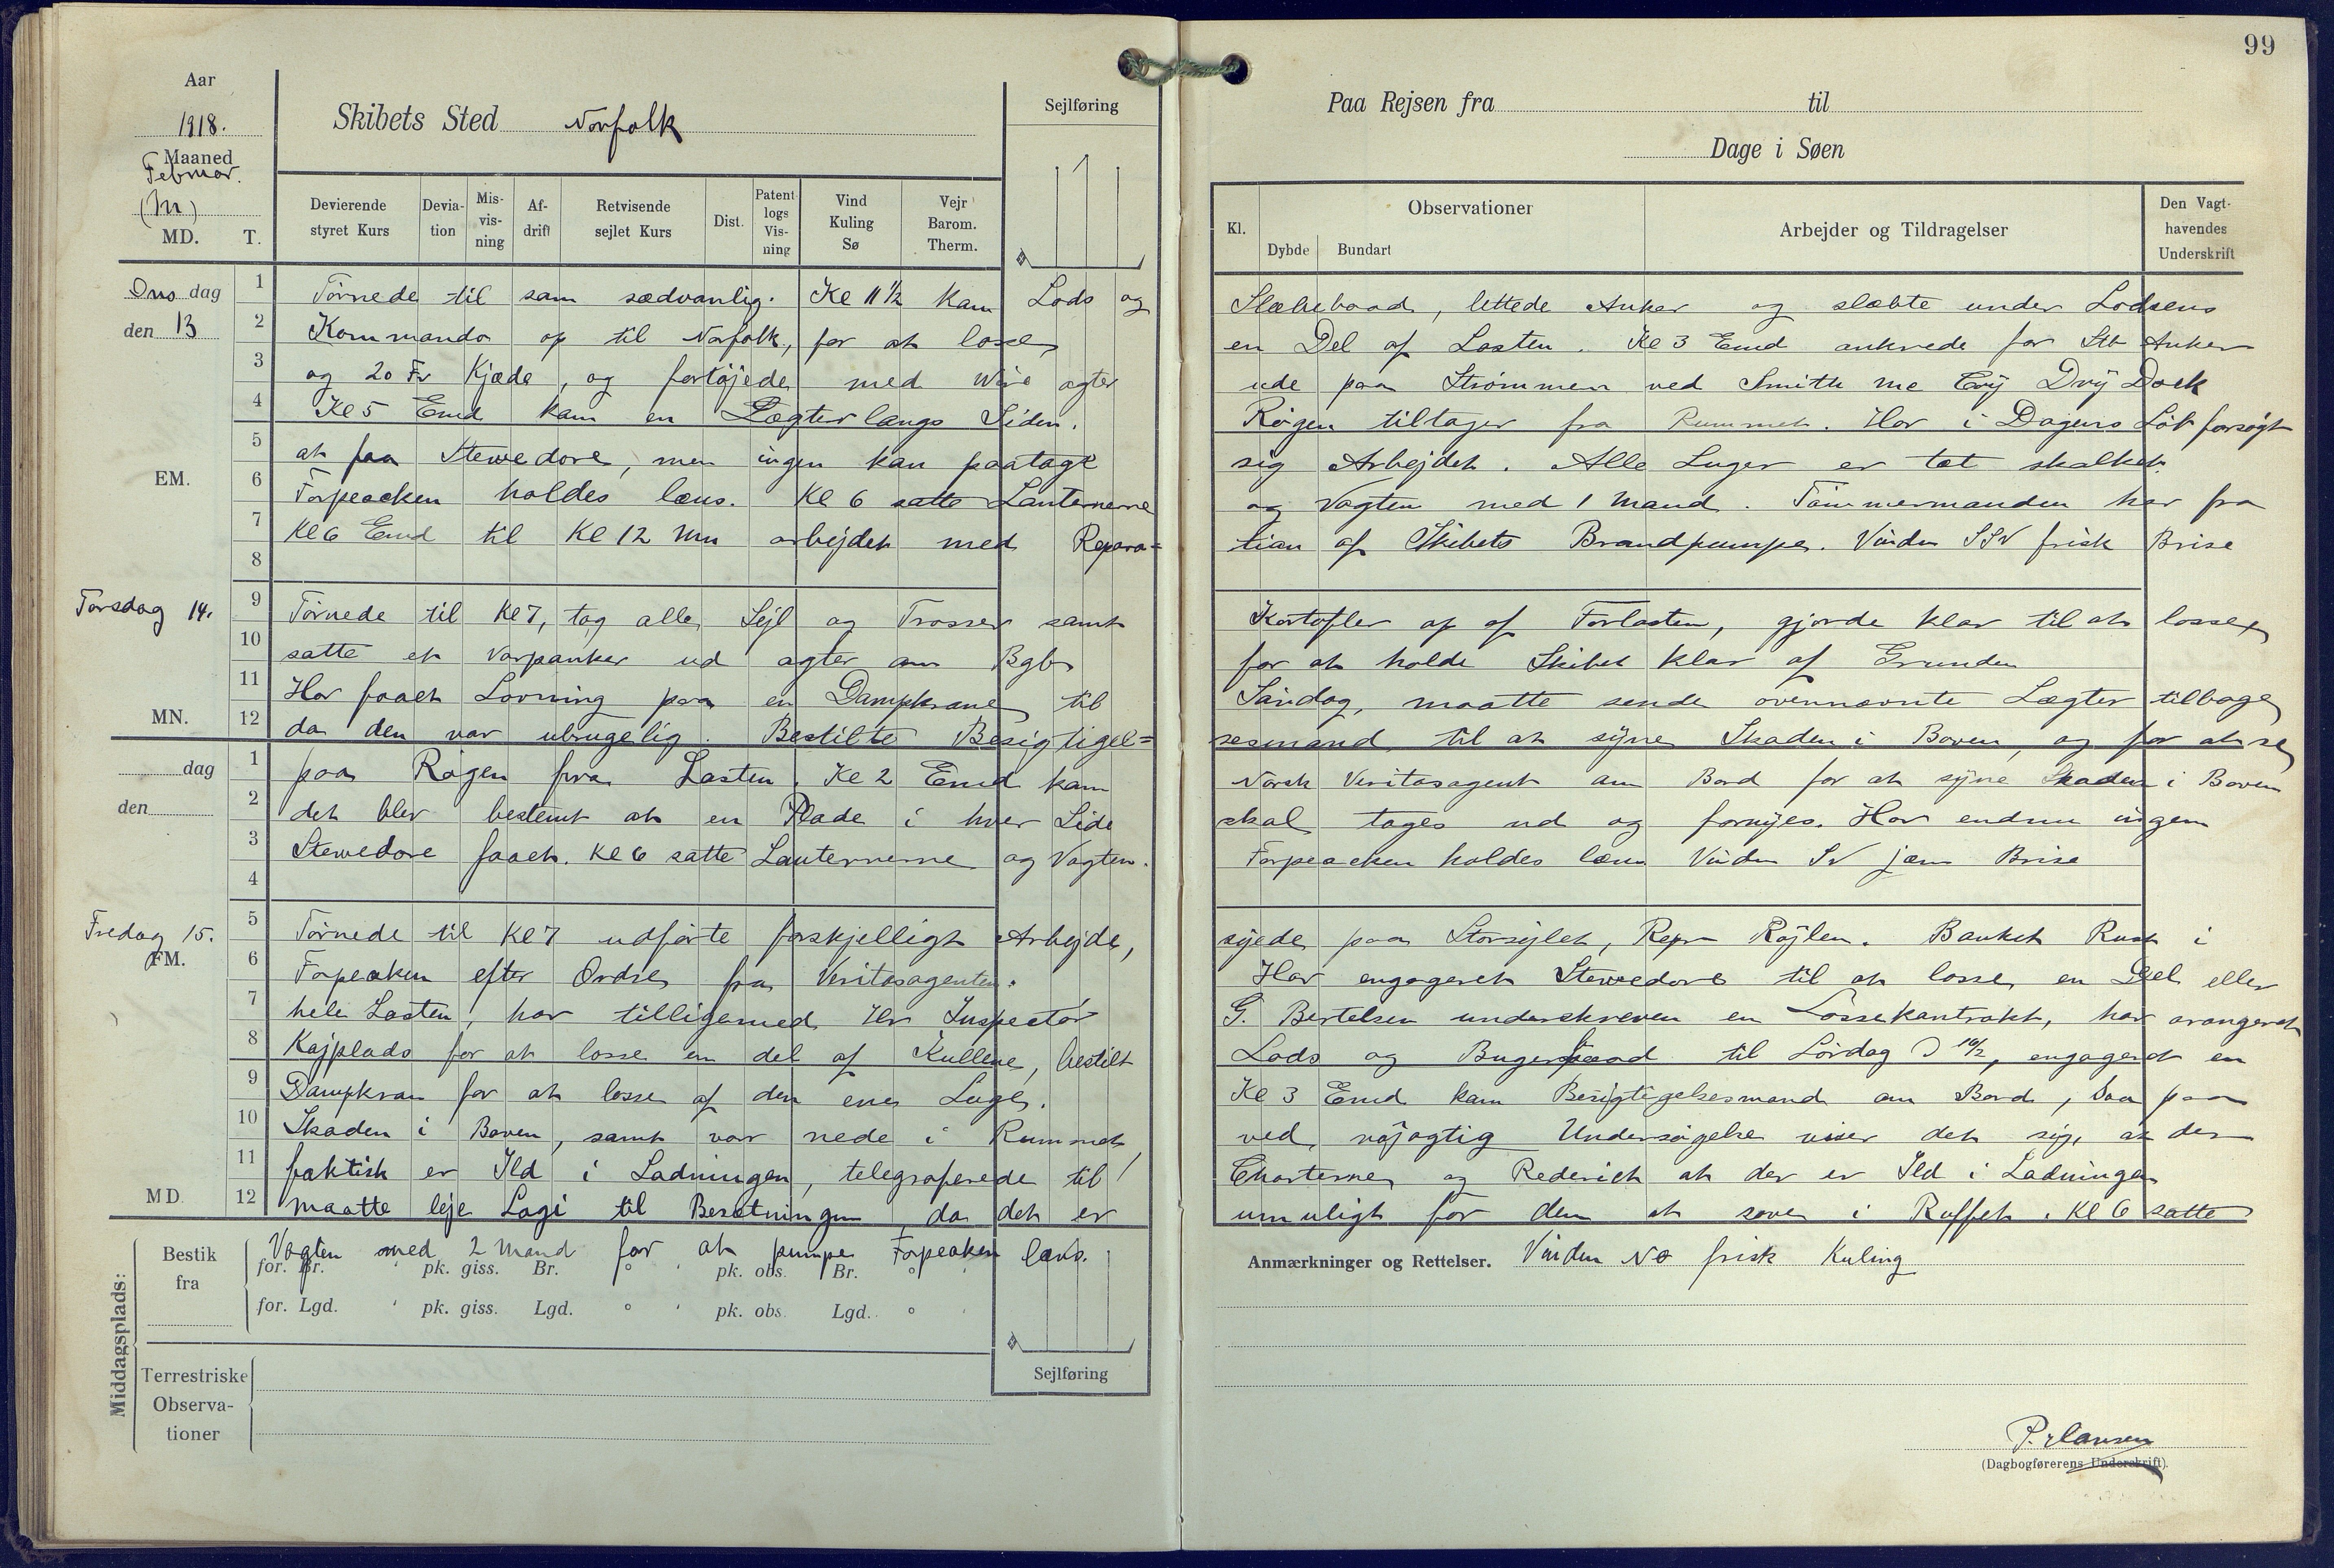 99
Aar
1918.
Maaned
Februar.
(M)
MD. T.
Skibets Sted Norfolk
Sejlføring
Paa Rejsen fra til
Dage i Søen
Devierende styret Kurs
Devia-tion
Mis-vis-ning
Af-drift
Retvisende sejlet Kurs
Dist.
Patent logs Vis-ning
Vind Kuling Sø
Vejr Barom. Therm.
Kl.
Observationer
Dybde Bundart
Arbejder og Tildragelser
Den Vagt-havendes Underskrift
Ons dag
den 13
EM.
1 Törnede til som sædvanlig. Kl 11 1/2 kam Lods og Slæbebaad, lettede Anker og slæbte under Lodsens
2 Kommando op til Norfolk, for at losse en Del af Lasten. Kl 3 Emd ankrede for Stb Anker
3 og 20 Fv Kjæde, og fortöjede med Wire agter ude paa Strömmen ved Smith Mc Coy Dry Dock
4 Kl 5 Emd kam en Lægter langs Siden. Rögen tiltager fra Rummet. Har i Dagens Löb forsögt
5 at faa Stewedore, men ingen kan paatage sig Arbejdet. Alle Luger er tæt skalket.
6 Forpeacken holdes læns. Kl 6 satte Lanternerne og Vagten med 1 Mand. Tömmermanden har fra
7 Kl 6 Emd til Kl 12 Mn arbejdet med Repara=tion af Skibets Brandpumpe. Vinden SSV frisk Brise
8
Torsdag 14.
MN.
9 Törnede til Kl 7, tog alle Sejl og Trosser samt Kartofler op af Forlasten, gjorde klar til at losse,
10 satte et Varpanker ud agter om Bgb for at holde Skibet klar af Grunden
11 Har faaet Lovning paa en Dampkrane til Sandag, maatte sende ovennævnte Lægter tilbage
12 da den var ubrugelig. Bestilte Besigtigel=sesmand til at syne Skaden i Boven, og for at se
dag
den
1 paa Rögen fra Lasten. Kl 2 Emd kam Norsk Veritasagent om Bord for at syne Skaden i Boven
2 det blev bestemt at en Plade i hver Side skal tages ud og fornyes. Har endnu ingen
3 Stewedore faaet. Kl 6 satte Lanternerne og Vagten. Forpeacken holdes læns Vinden SV jæm Brise
4
Fredag 15.
FM.
5 Törnede til Kl 7 udförte forskjelligt Arbejde, syede paa Storsejlet, Repr Röjlen. Banket Rust i
6 Forpeaken efter Ordre fra Veritasagenten. Har engageret Stewedore til at losse en Del eller
7 hele Lasten, har tilligemed Hr Inspectör G. Bertelsen underskreven en Lossekontrakt, har arangeret
8 Kajplads for at losse en del af Kullene, bestilt Lods og Bugserbaad til Lördag D 16/2, engageret en
9 Dampkran for at losse af den ene Luge. Kl 3 Emd kam Besigtigelsesmand om Bord, saa paa
10 Skaden i Boven, samt var nede i Rummet, ved nöjagtig Undersögelse viser det sig, at der
11 faktisk er Ild i Ladningen, telegraferede til Charterne og Rederiet at der er Ild i Ladningen
MD. 12 maatte leje Logi til Besætningen, da det er umuligt for dem at sove i Ruffet. Kl 6 satte
Vagten med 2 Mand for at pumpe Forpeaken læns.
Anmærkninger og Rettelser. Vinden NO frisk Kuling
Middagsplads:
Bestik fra
for. Br. ° ' pk. giss. Br. ° ' pk. obs. Br. ° '
for. Lgd. ° ' pk. giss. Lgd. ° ' pk. obs. Lgd. ° '
Sejlføring
Terrestriske Observa-tioner
P. Hansen
(Dagbogførerens Underskrift).